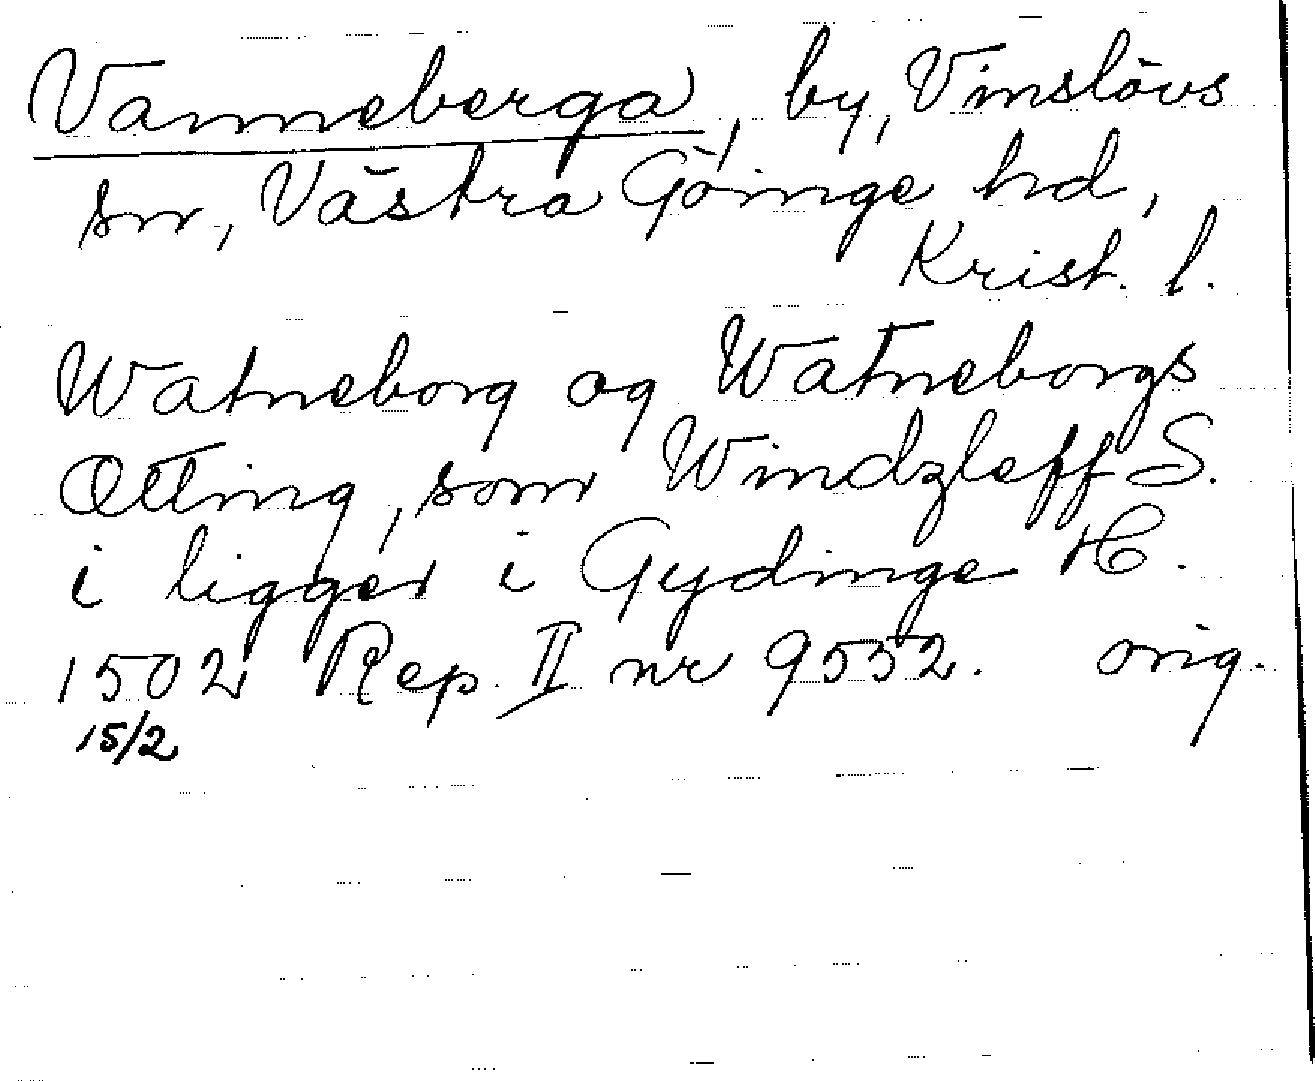 Vanneberga, by, Vinslövs
sn, Västra Göinge hd,
Krist. l.
Watneborg og Watneborgs
Otting, som Windzleff S.
i ligger i Gydinge H.
1502 Rep. II nr 9532. orig.
15/2